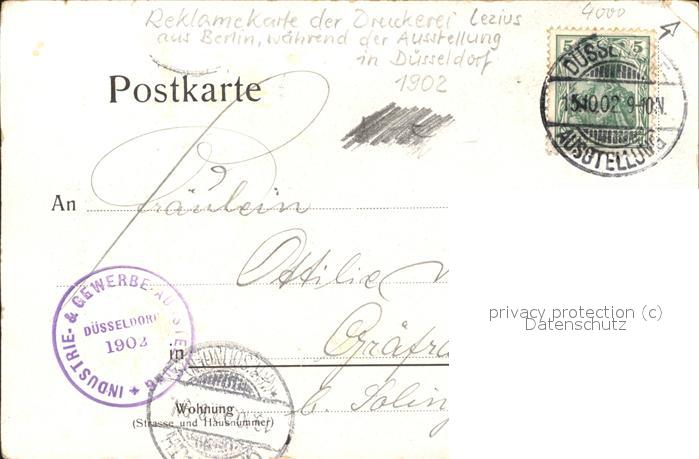 Reklamekarte der Druckerei Lezius
aus Berlin, während der Ausstellung
in Düsseldorf
1902
4000
5
DÜSSE
15.10.02 9-10N.
AUSSTELLUNG
Postkarte
An Fräulein
Ottilie
privacy protection (c)
Datenschutz
INDUSTRIE- & GEWERBE-AUSSTELLUNG
DÜSSELDORF
1902
in Gräfra
Wohnung
(Strasse und Hausnummer)
b. Soling